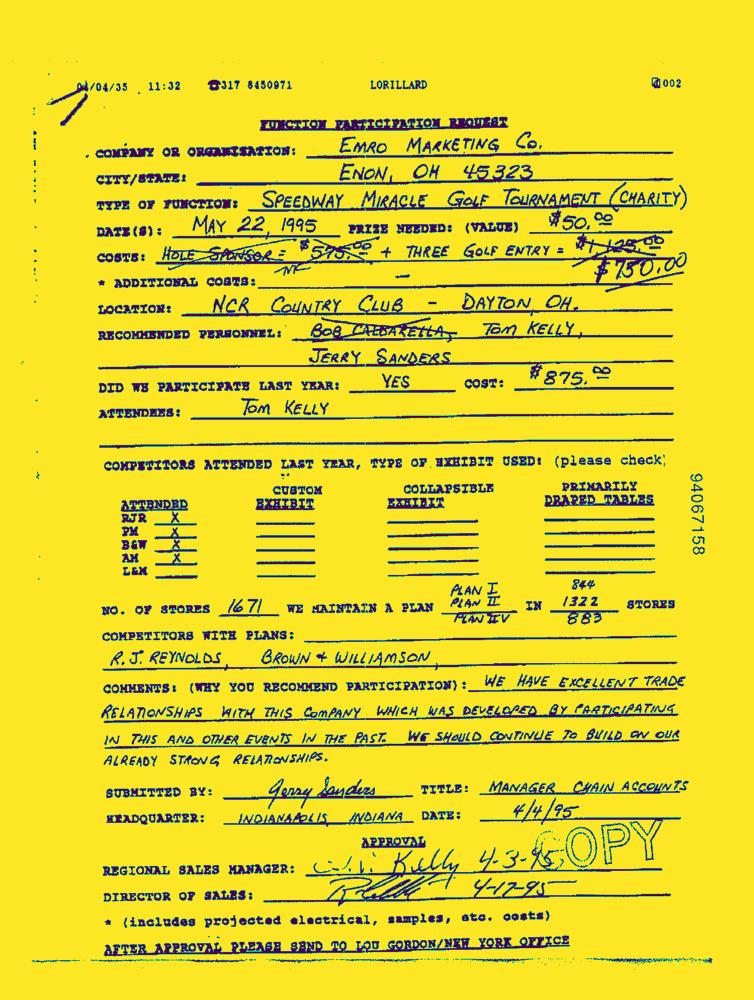 04/04/35 11:32 ☎317 8450971 LORILLARD 002
FUNCTION PARTICIPATION REQUEST
COMPANY OR ORGANIZATION: EMRO MARKETING CO.
CITY/STATE: ENON, OH 45323
TYPE OF FUNCTION: SPEEDWAY MIRACLE GOLF TOURNAMENT (CHARITY)
DATE(S): MAY 22, 1995 PRIZE NEEDED: (VALUE) $50.00
COSTS: HOLE SPONSOR = $575.00 + THREE GOLF ENTRY = $1,125.00
$750.00
* ADDITIONAL COSTS: —
LOCATION: NCR COUNTRY CLUB - DAYTON, OH.
RECOMMENDED PERSONNEL: BOB CALDARELLA, TOM KELLY,
JERRY SANDERS
DID WE PARTICIPATE LAST YEAR: YES COST: $875.00
ATTENDEES: TOM KELLY
COMPETITORS ATTENDED LAST YEAR, TYPE OF EXHIBIT USED: (please check)
CUSTOM COLLAPSIBLE PRIMARILY
ATTENDED EXHIBIT EXHIBIT DRAPED TABLES
RJR X
PM X
B&W X
AM X
L&M
PLAN I 844
NO. OF STORES 1671 WE MAINTAIN A PLAN PLAN II IN 1322 STORES
PLAN IV 883
COMPETITORS WITH PLANS:
R.J. REYNOLDS, BROWN + WILLIAMSON,
COMMENTS: (WHY YOU RECOMMEND PARTICIPATION): WE HAVE EXCELLENT TRADE
RELATIONSHIPS WITH THIS COMPANY WHICH WAS DEVELOPED BY PARTICIPATING
IN THIS AND OTHER EVENTS IN THE PAST. WE SHOULD CONTINUE TO BUILD ON OUR
ALREADY STRONG RELATIONSHIPS.
SUBMITTED BY: Jerry Sanders TITLE: MANAGER CHAIN ACCOUNTS
HEADQUARTER: INDIANAPOLIS, INDIANA DATE: 4/4/95
APPROVAL
REGIONAL SALES MANAGER: Kelly 4-3-95 COPY
DIRECTOR OF SALES: 4-17-95
* (includes projected electrical, samples, etc. costs)
AFTER APPROVAL PLEASE SEND TO LOU GORDON/NEW YORK OFFICE
94067158